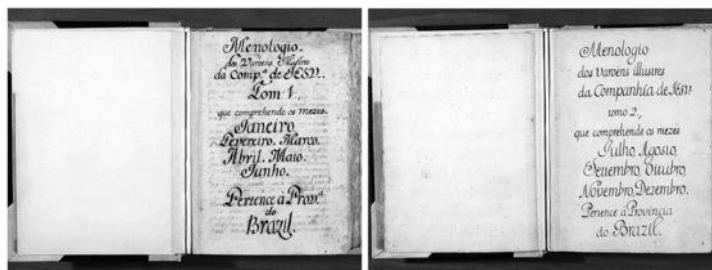 Menologio.
dos Varoens Illustres
da Comp.ª de IESV..
Tom 1.
que comprehende os mezes.
Janeiro
Fevereiro. Marco.
Abril. Maio.
Junho.
Pertence á Prov.ª
do
Brazil.
Menologio
dos varoens illustres
da Companhia de IESV.
tomo 2.,
que comprehende os mezes
Julho, Agosto,
Settembro, Oitubro,
Novembro, Dezembro.
Pertence á Provincia
do Brazil.